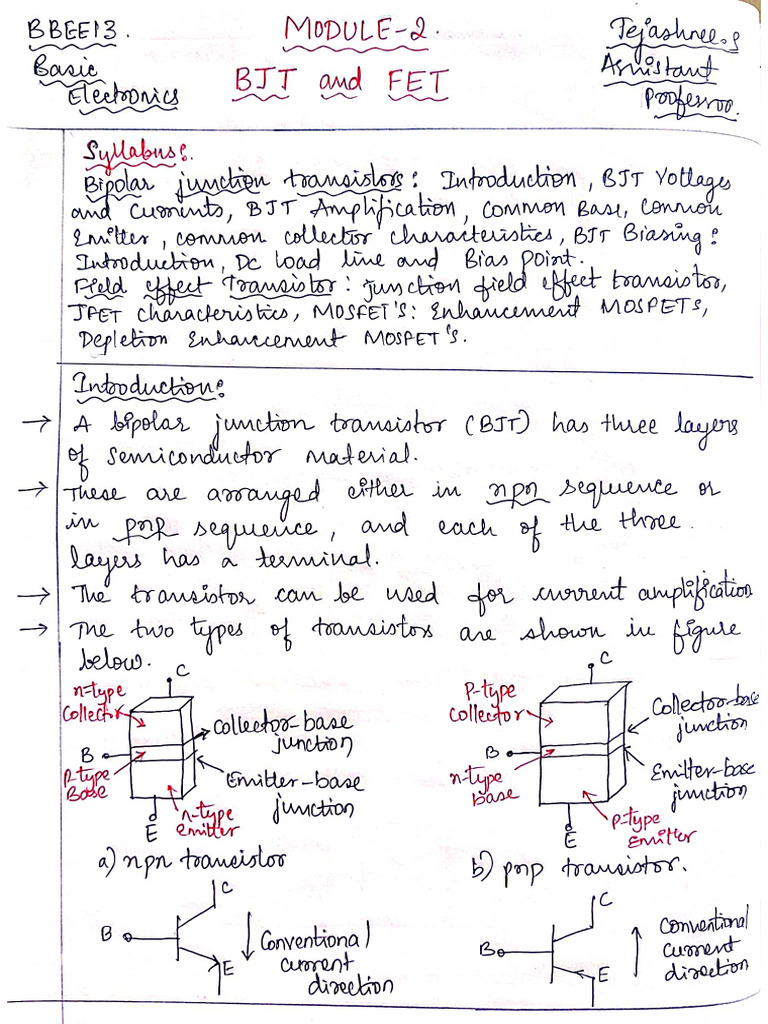 BBEE13.
Basic
Electronics
MODULE-2.
BJT and FET
Tejashree.S
Assistant
Professor.
Syllabus:
Bipolar junction transistors: Introduction, BJT Voltages
and Currents, BJT Amplification, Common Base, Common
Emitter, common collector characteristics, BJT Biasing:
Introduction, DC load line and Bias point.
Field effect Transistor: junction field effect transistor,
JFET characteristics, MOSFET'S: Enhancement MOSFETS,
Depletion Enhancement MOSFET'S.
Introduction:
→ A bipolar junction transistor (BJT) has three layers
of semiconductor material.
→ These are arranged either in npn sequence or
in pnp sequence, and each of the three
layers has a terminal.
→ The transistor can be used for current amplification
→ The two types of transistors are shown in figure
below.
C
n-type
Collector
Collector-base
junction
B
P-type
Base
Emitter-base
junction
n-type
Emitter
E
a) npn transistor
C
P-type
Collector
Collector-base
junction
B
n-type
Base
Emitter-base
junction
P-type
Emitter
E
b) pnp transistor.
C
B
E
Conventional
current
direction
C
B
E
Conventional
current
direction